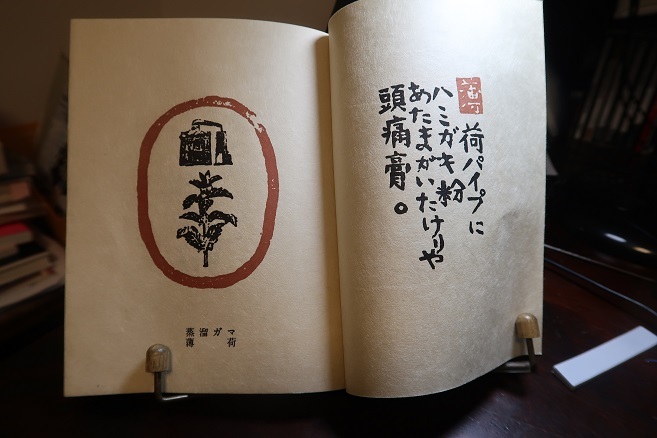 荷パイプに
ハミガキ粉
あたまがいたけりや
頭痛膏。
蒸溜ガマ
薄荷